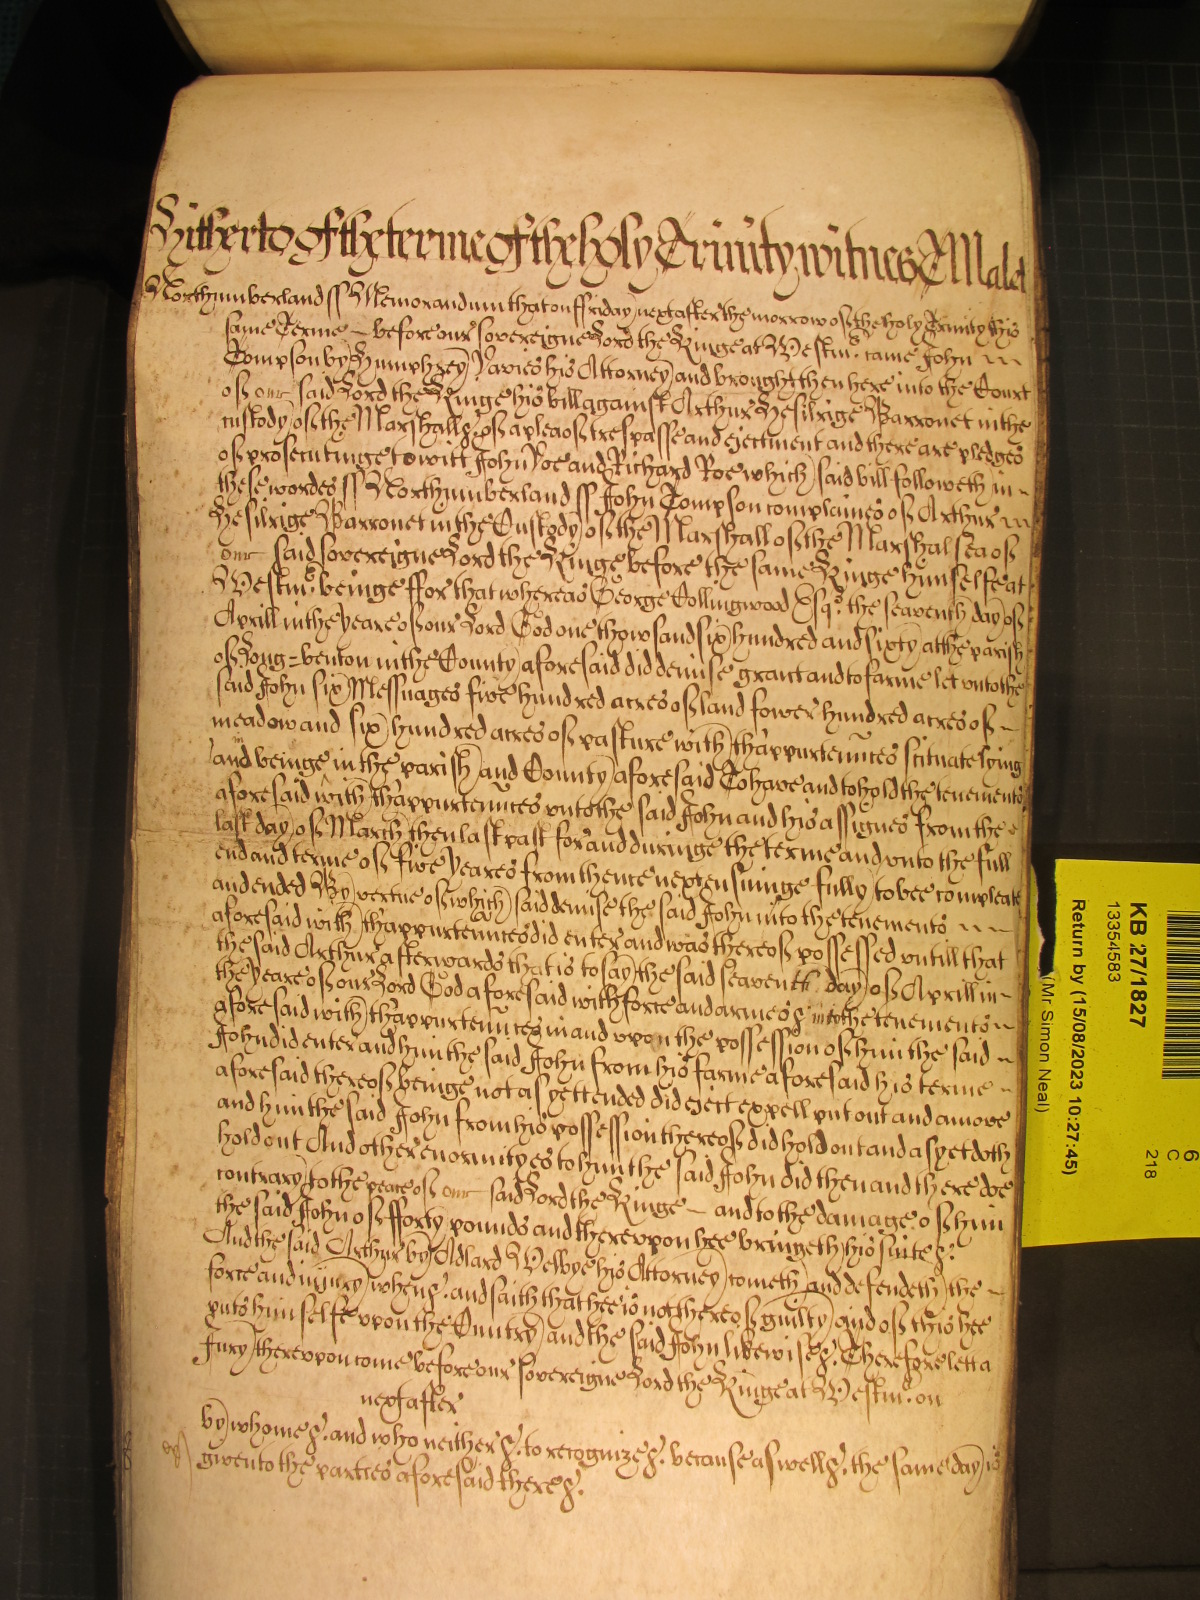 Hitherto of the terme of the holy Trinity witnes T Malet
Northumberland ss Memorandum that on ffriday next after the morrow of the holy Trinity this
same Terme – before our sovereigne Lord the Kinge at Westmr. came John
Tompson by Humphrey Davies his Attorney and brought then here into the Court
of our said Lord the Kinge his bill against Arthur Hesilrige Barronet in the
custody of the Marshall &c. of a plea of trespasse and ejectment and there are pledges
of prosecutinge to witt John Doe and Richard Roe which said bill followeth in
these wordes ss Northumberland ss John Tompson complaines of Arthur
Hesilrige Barronet in the Custody of the Marshall of the Marshalsea of
our said sovereigne Lord the Kinge before the same Kinge himselfe at
Westmr. beinge ffor that whereas George Collingwood Esqr. the seaventh day of
Aprill in the yeare of our Lord God one thowsand six hundred and sixty at the parish
of Long=benton in the County aforesaid did demise grant and to farme let unto the
said John six Messuages five hundred acres of land fower hundred acres of
meadow and six hundred acres of pasture with th'appurtennces scituate lying
and beinge in the parish and County aforesaid To have and to hold the tenements
aforesaid with th'appurtennces unto the said John and his assignes from the
last day of March then last past for and duringe the terme and unto the full
end and terme of five yeares from thence next ensuinge fully to bee compleate
and ended By vertue of which said demise the said John into the tenements
aforesaid with th'appurtennces did enter and was thereof possessed untill that
the said Arthur afterwards that is to say the said seaventh day of Aprill in
the yeare of our Lord God aforesaid with force and armes &c. into the tenements
aforesaid with th'appurtennces in and upon the possession of him the said
John did enter and him the said John from his farme aforesaid his terme
aforesaid thereof beinge not as yett ended did eject expell put out and amove
and him the said John from his possession thereof did hold out and as yet doth
hold out And other enormityes to him the said John did then and there doe
contrary to the peace of our said Lord the Kinge – and to the damage of him
the said John of fforty pounds and thereupon hee bringeth his suite &c.
And the said Arthur by Adlard Welbye his Attorney cometh and defendeth the
force and injury when &c. and saith that hee is not thereof guilty and of this hee
puts himselfe upon the Cuntry and the said John likewise &c. Therefore let a
Jury thereupon come before our sovereigne Lord the Kinge at Westmr. on
next after
by whome &c. and who neither &c. to recognize &c. because aswell &c. the same day is
given to the parties aforesaid there &c.
KB 27/1827
13354583
Return by (15/08/2023 10:27:45)
(Mr Simon Neal)
6
C
218